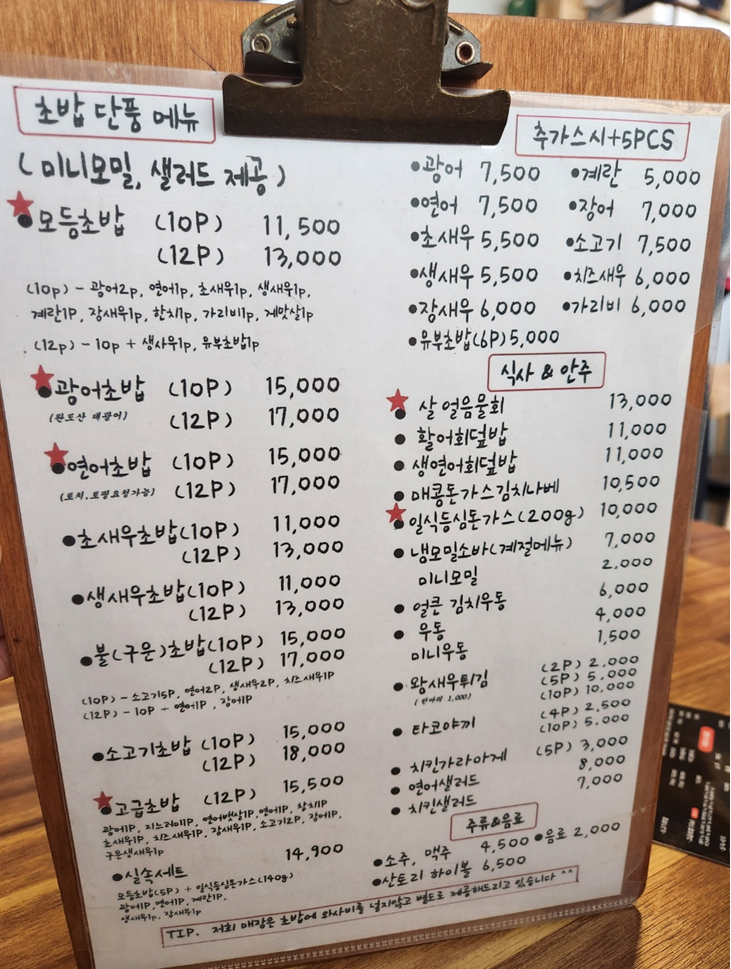 초밥 단품 메뉴
(미니모밀, 샐러드 제공)
모듬초밥 (10P) 11,500
(12P) 13,000
(10p) - 광어2p, 연어1p, 초새우1p, 생새우1p,
계란1P, 장새우1p, 한치1p, 가리비1p, 게맛살1p
(12p) - 10p + 생사우1p, 유부초밥1p
광어초밥 (10P) 15,000
(완도산 대광어) (12P) 17,000
연어초밥 (10P) 15,000
(토치,토핑요청가능) (12P) 17,000
초새우초밥(10P) 11,000
(12P) 13,000
생새우초밥(10P) 11,000
(12P) 13,000
불(구운)초밥(10P) 15,000
(12P) 17,000
(10P) - 소고기5P, 연어2P, 생새우2P, 치즈새우1P
(12P) - 10P + 연어1P, 장어1P
소고기초밥 (10P) 15,000
(12P) 18,000
고급초밥 (12P) 15,500
광어1P, 지느러미1P, 연어뱃살1P, 연어1P, 참치1P
초새우1P, 치즈새우1P, 장새우1P, 소고기2P, 장어1P,
구운생새우1P
실속세트 14,900
모듬초밥(5P) + 일식등심돈가스(140g)
광어1P, 연어1P, 계란1P,
생새우1p, 장새우1p
추가스시+5PCS
광어 7,500 계란 5,000
연어 7,500 장어 7,000
초새우 5,500 소고기 7,500
생새우 5,500 치즈새우 6,000
장새우 6,000 가리비 6,000
유부초밥(6P) 5,000
식사 & 안주
살 얼음물회 13,000
활어회덮밥 11,000
생연어회덮밥 11,000
매콤돈가스김치나베 10,500
일식등심돈가스(200g) 10,000
냉모밀소바(계절메뉴) 7,000
미니모밀 2,000
얼큰 김치우동 6,000
우동 4,000
미니우동 1,500
왕새우튀김 (2P) 2,000
(5P) 5,000
(10P) 10,000
타코야끼 (4P) 2,500
(10P) 5,000
치킨가라아게 (5P) 3,000
연어샐러드 8,000
치킨샐러드 7,000
주류&음료
소주, 맥주 4,500 음료 2,000
산토리 하이볼 6,500
TIP. 저희 매장은 초밥에 와사비를 넣지않고 별도로 제공해드리고 있습니다 ^^